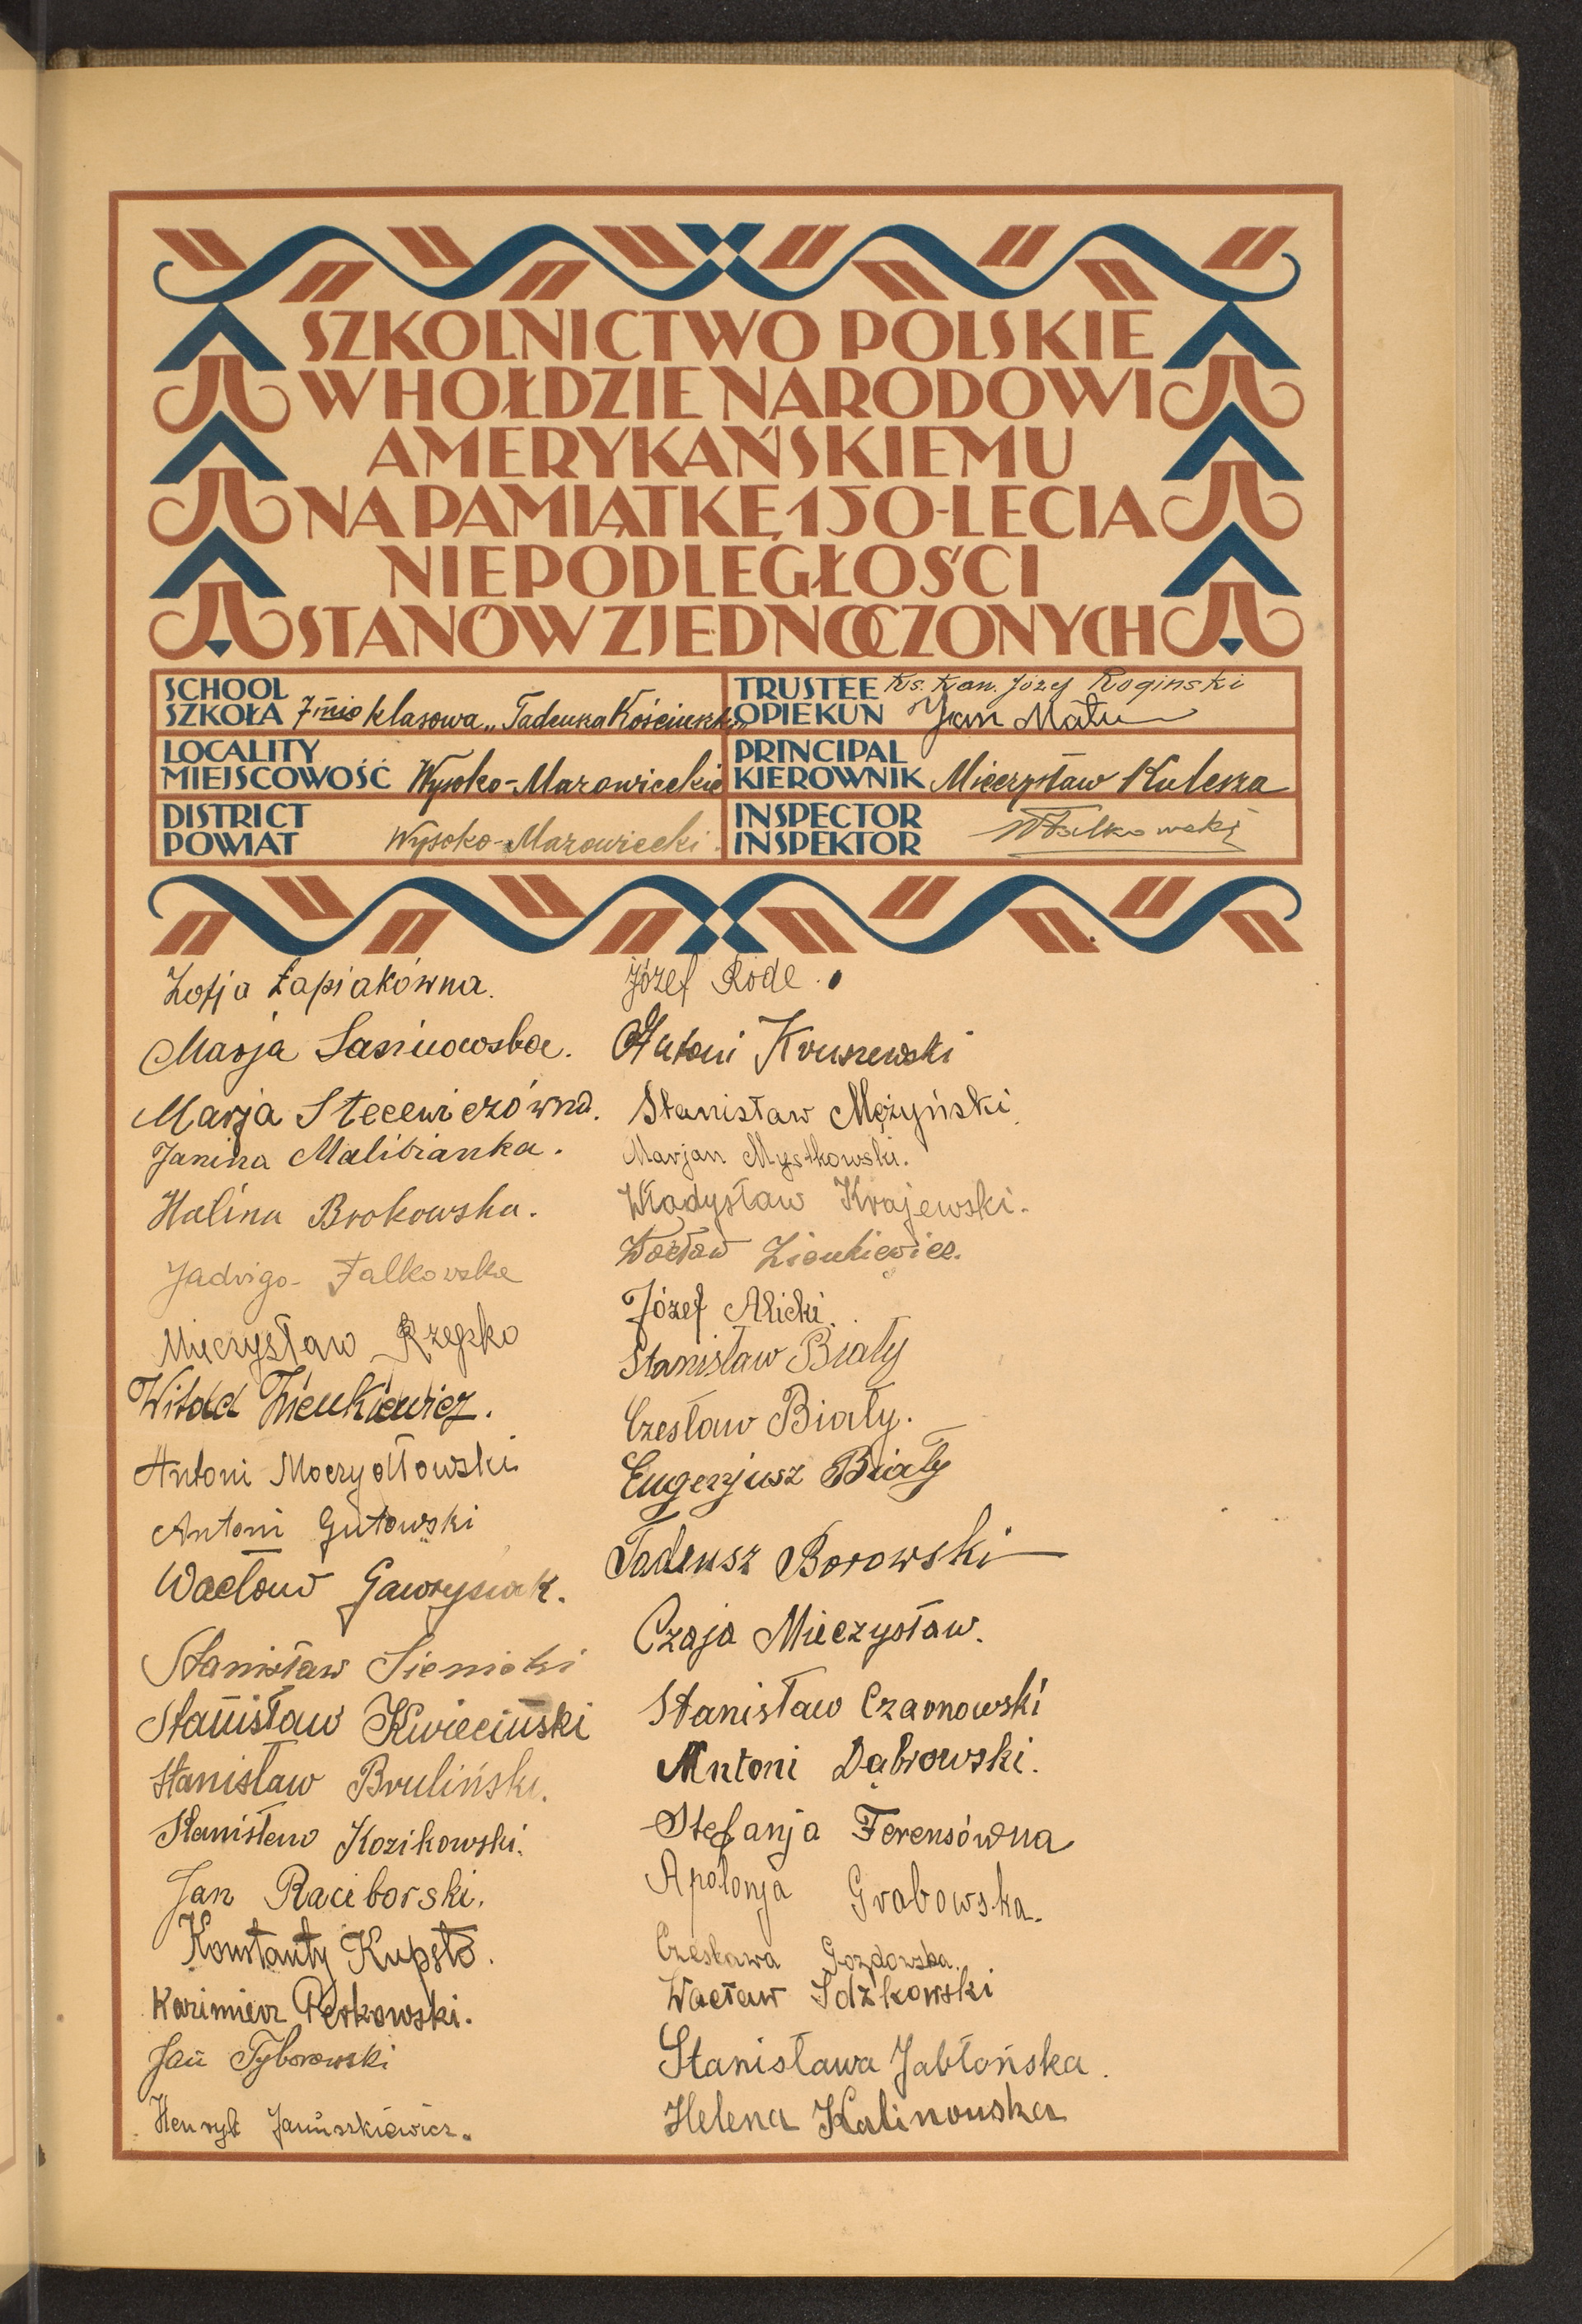 SZKOLNICTWO POLSKIE
W HOŁDZIE NARODOWI
AMERYKAŃSKIEMU
NA PAMIĄTKĘ 150-LECIA
NIEPODLEGŁOŚCI
STANÓW ZJEDNOCZONYCH
SCHOOL
SZKOŁA 7mio klasowa „Tadeusza Kościuszki"
TRUSTEE Ks. Kan. Józef Rogiński
OPIEKUN Jan
LOCALITY
MIEJSCOWOŚĆ Wysoko-Mazowieckie
PRINCIPAL
KIEROWNIK Mieczysław Kulesza
DISTRICT
POWIAT Wysoko-Mazowiecki.
INSPECTOR
INSPEKTOR
Zofja Łapiakówna.
Marja
Marja Stecewiczówna.
Janina
Halina Brokowska.
Jadwiga Falkowska
Mieczysław Rzepko
Witold Zienkiewicz.
Antoni Moczydłowski
Antoni Gutowski
Wacław Gawrysiak.
Stanisław Sienicki
Stanisław Kwieciński
Stanisław Bruliński.
Stanisław Kozikowski.
Jan Raciborski.
Konstanty Kupsto.
Kazimierz Perkowski.
Jan Tyborowski
Henryk Januszkiewicz.
Józef Rode.
Antoni Kruszewski
Stanisław Mężyński.
Marjan Mystkowski.
Władysław Krajewski.
Wacław Zienkiewicz.
Józef Alicki.
Stanisław Biały
Czesław Biały.
Eugenjusz Biały
Tadeusz Borowski
Czaja Mieczysław.
Stanisław Czarnowski
Antoni Dąbrowski.
Stefanja Ferensówna
Apolonja Grabowska.
Czesława Gozdowska.
Wacław Idźkowski
Stanisława Jabłońska.
Helena Kalinowska